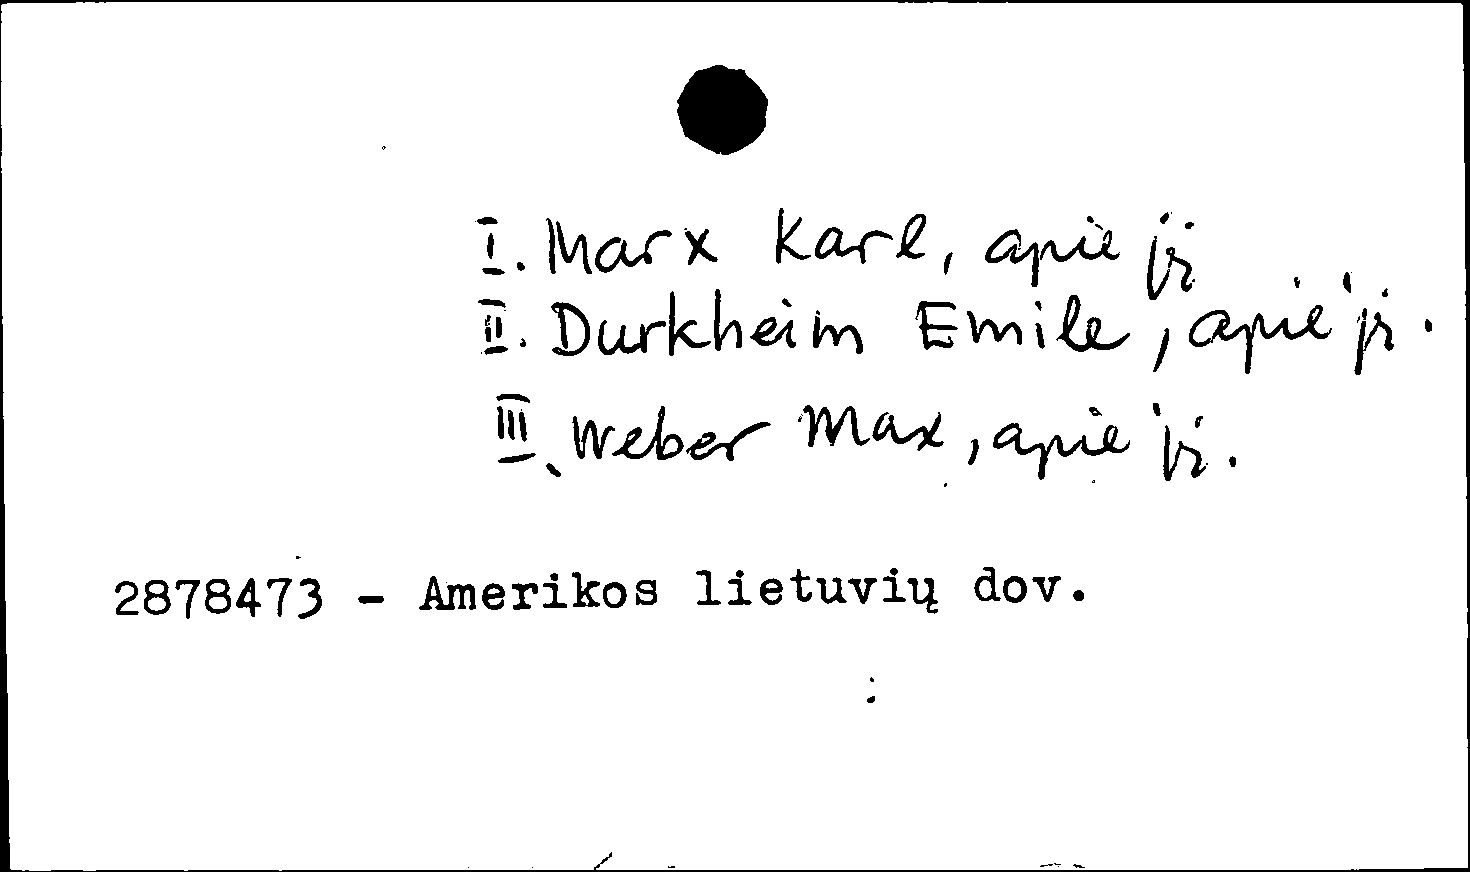 I. Marx Karl, apie jį
II. Durkheim Emile, apie jį.
III. Weber Max, apie jį.
2878473 - Amerikos lietuvių dov.